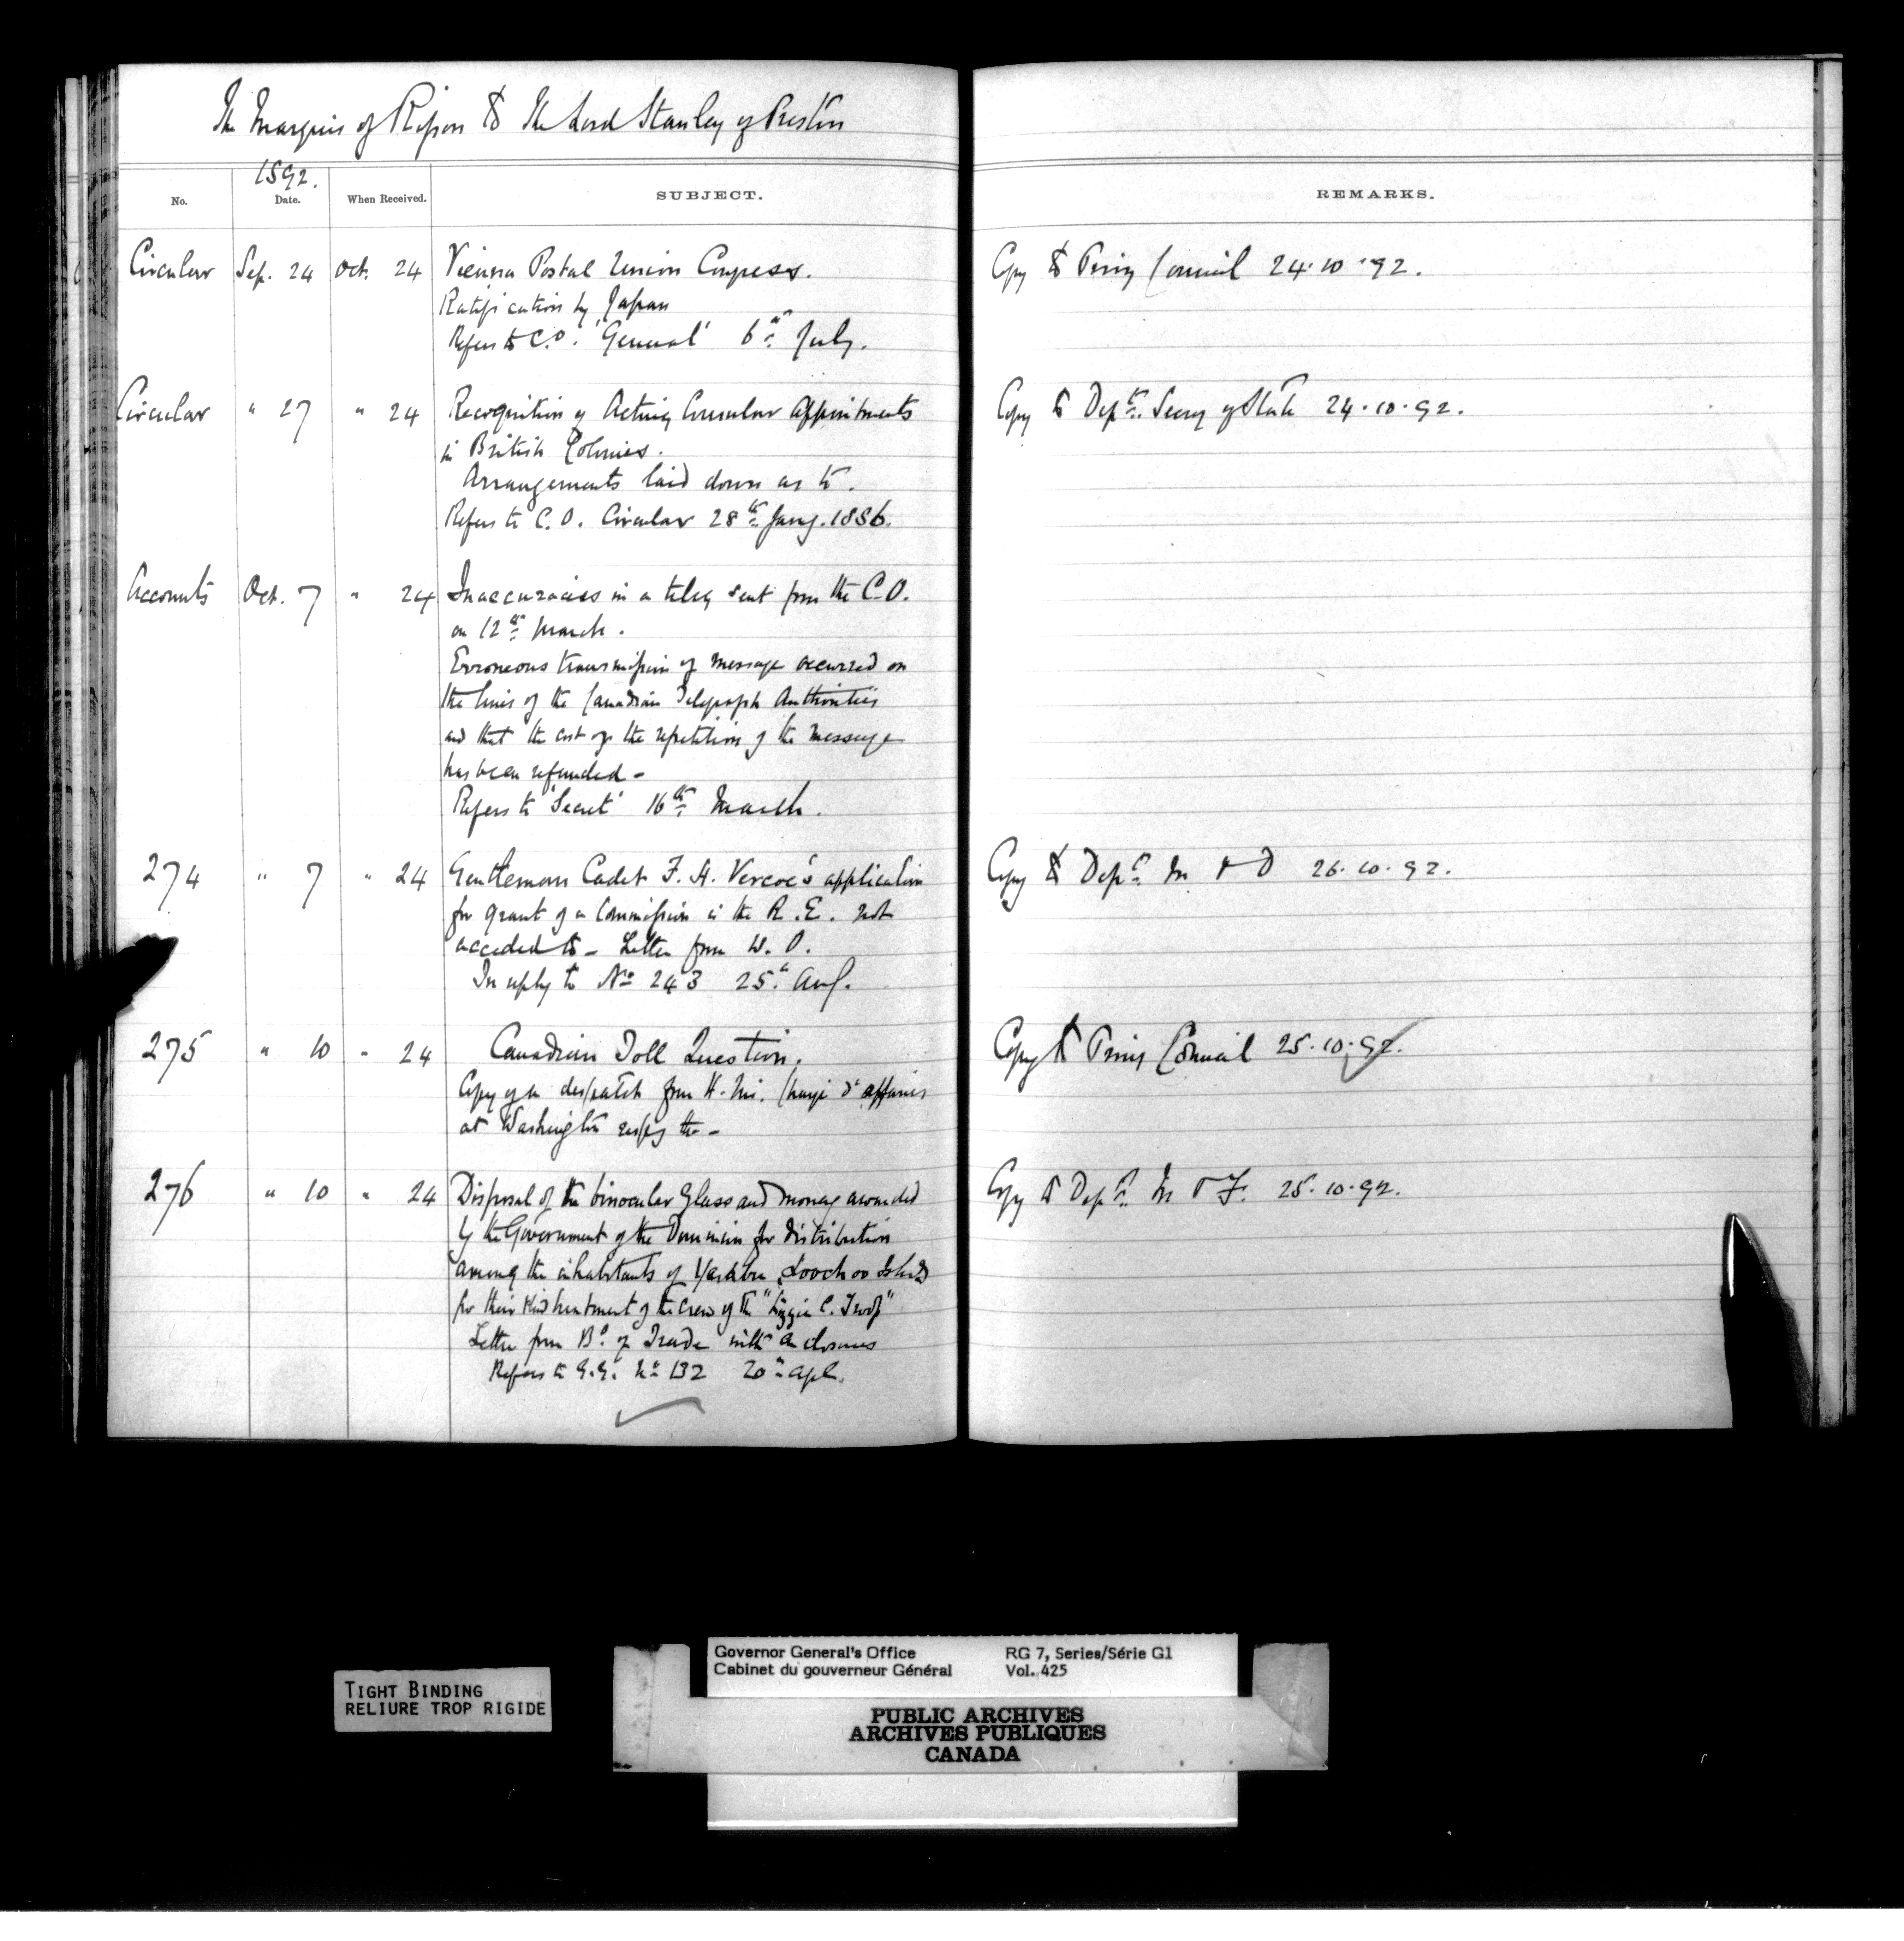 The Marquis of Ripon to The Lord Stanley of Preston
1892.
No. Date. When Received. SUBJECT. REMARKS.
Circular Sep. 24 Oct. 24 Vienna Postal Union Congress. Copy to Privy Council 24.10.92.
Ratification by Japan
Refers to C.O. 'General' 6th July.
Circular " 27 " 24 Recognition of Acting Consular Appointments Copy to Dept. Secy of State 24.10.92.
in British Colonies.
Arrangements laid down as to.
Refers to C.O. Circular 28th Jany. 1886.
Accounts Oct. 7 " 24 Inaccuracies in a teleg sent from the C.O.
on 12th March.
Erroneous transmission of message occurred on
the lines of the Canadian Telegraph Authorities
and that the cost of the repetition of the message
has been refunded -
Refers to 'Secret' 16th March.
274 " 7 " 24 Gentleman Cadet F. H. Vercoe's application Copy to Dept. M & D 26.10.92.
for grant of a Commission in the R.E. not
acceded to - Letter from W.O.
In reply to No 243 25th Aug.
275 " 10 " 24 Canadian Toll Question. Copy to Privy Council 25.10.92.
Copy of a despatch from H.M. Chargé d'affaires
at Washington respg the -
276 " 10 " 24 Disposal of the binocular glass and money awarded Copy to Dept. M & F. 25.10.92.
by the Government of the Dominion for distribution
among the inhabitants of Loochoo Islds
for their kind treatment of the crew of the "Lizzie C. Troop"
Letter from Bd. of Trade with enclosures
Refers to G.G. No 132 20th Apl.
TIGHT BINDING
RELIURE TROP RIGIDE
Governor General's Office RG 7, Series/Série G1
Cabinet du gouverneur Général Vol. 425
PUBLIC ARCHIVES
ARCHIVES PUBLIQUES
CANADA